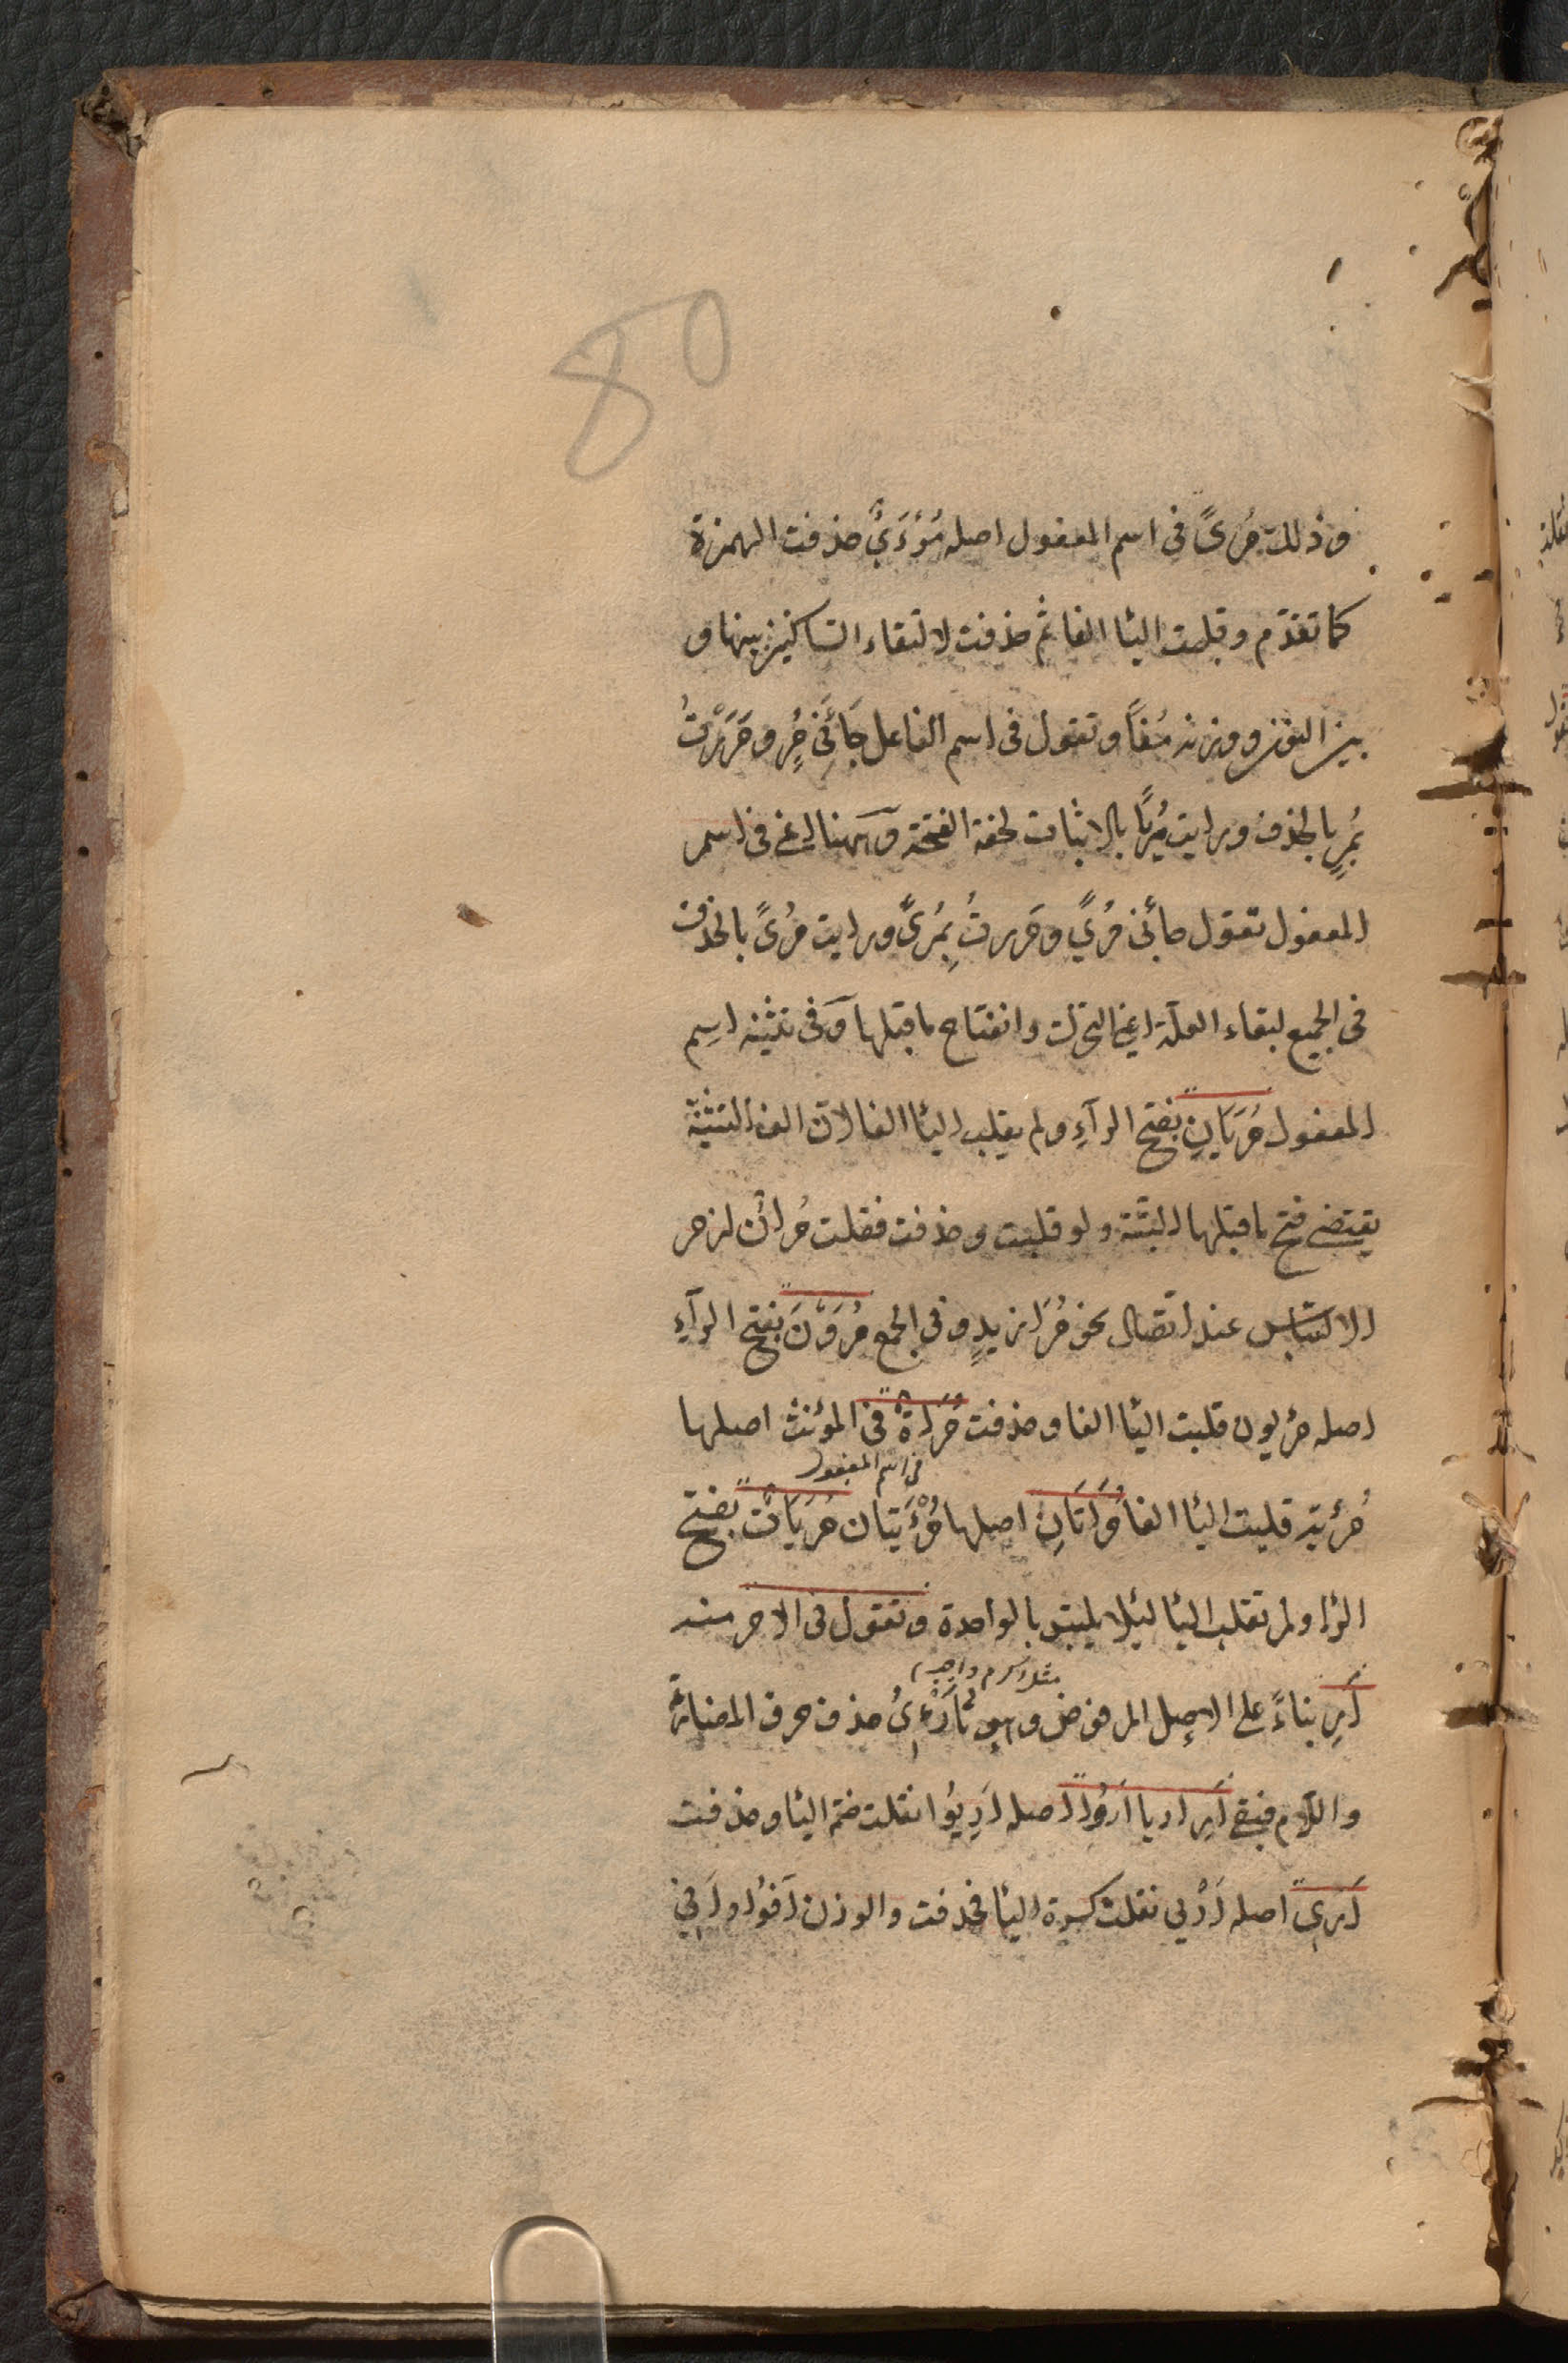 80
وذلك مُرىً فى اسم المفعول اصله مُؤرَءىٌ حذفت الهمزة
كما تقدّم وقلبت اليا الفا ثم حذفت لالتقاء الساكنين بينها و
بين التنوين ووزنه مُفاً وتقول فى اسم الفاعل جَائَنِى مُرٍ ومَرَرْتُ
بُمرٍ بالحذف ورايت مُرِيًا بالاثبات لخفة الفتحة وههنا اعنى فى اسم
المفعول تقول جائنى مُرىً ومَررتُ بِمُرىً ورايت مُرىً بالحذف
فى الجميع لبقاء العلّة اعنى التحرّك وانفتاح ماقبلها وَفى تثنية اسِم
المفعول مُرَيَانِ بفتح الرآءِ ولم يقلب اليا الفا لانّ الف التثنية
يقتضى فتح ماقبلها البتّة ولو قلبت وحذفت فقلت مُرانِ لزم
الالتباس عند اتّصال نحو مُرَا زيدٍ وفى الجمع مُرَوْنَ بفتح الرآءِ
اصله مرئيون قلبت اليا الفا وحذفت مُرَاةٌ فى المؤنث اصلها
فى اسم المفعول
مُرئية قلبت اليا الفا مُرَاتَانِ اصلها مُرْءَيَتان مُرَيَاتٌ بفتح
الرّا ولم تقلب اليا ليلا يلتبس بالواحدة وتقول فى الامر منه
مثل اكرم واجب
اَرِ بناءً على الاصل المرفوض وهو تُأَرْءِىُ حذف حرف المضارعة
واللّام فبقى اَرِ اريا اَرُوا اصله اَرِيُوا نقلت ضمّة اليا وحذفت
اَرِى اصله اَرْيى نقلت كسرة اليا فحذفت والوزن اَفُوا واَفِى